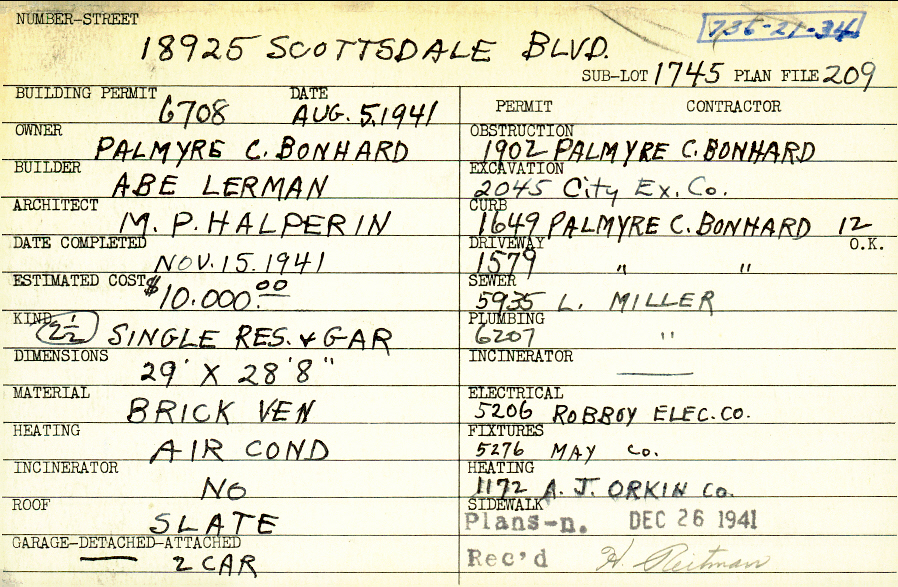 NUMBER-STREET
736-21-34
18925 SCOTTSDALE BLVD.
SUB-LOT 1745 PLAN FILE 209
BUILDING PERMIT DATE
6708 AUG. 5, 1941
OWNER
PALMYRE C. BONHARD
BUILDER
ABE LERMAN
ARCHITECT
M. P. HALPERIN
DATE COMPLETED
NOV. 15. 1941
ESTIMATED COST
$10.000.00
KIND
2½ SINGLE RES. & GAR
DIMENSIONS
29' X 28'8"
MATERIAL
BRICK VEN
HEATING
AIR COND
INCINERATOR
NO
ROOF
SLATE
GARAGE-DETACHED-ATTACHED
2 CAR
PERMIT CONTRACTOR
OBSTRUCTION
1902 PALMYRE C. BONHARD
EXCAVATION
2045 City Ex. Co.
CURB
1649 PALMYRE C. BONHARD 12
DRIVEWAY O.K.
1579 " "
SEWER
5935 L. MILLER
PLUMBING
6207 "
INCINERATOR
ELECTRICAL
5206 ROBBOY ELEC. CO.
FIXTURES
5276 MAY Co.
HEATING
1172 A. J. ORKIN Co.
SIDEWALK
Plans-n. DEC 26 1941
Rec'd H. Reitman